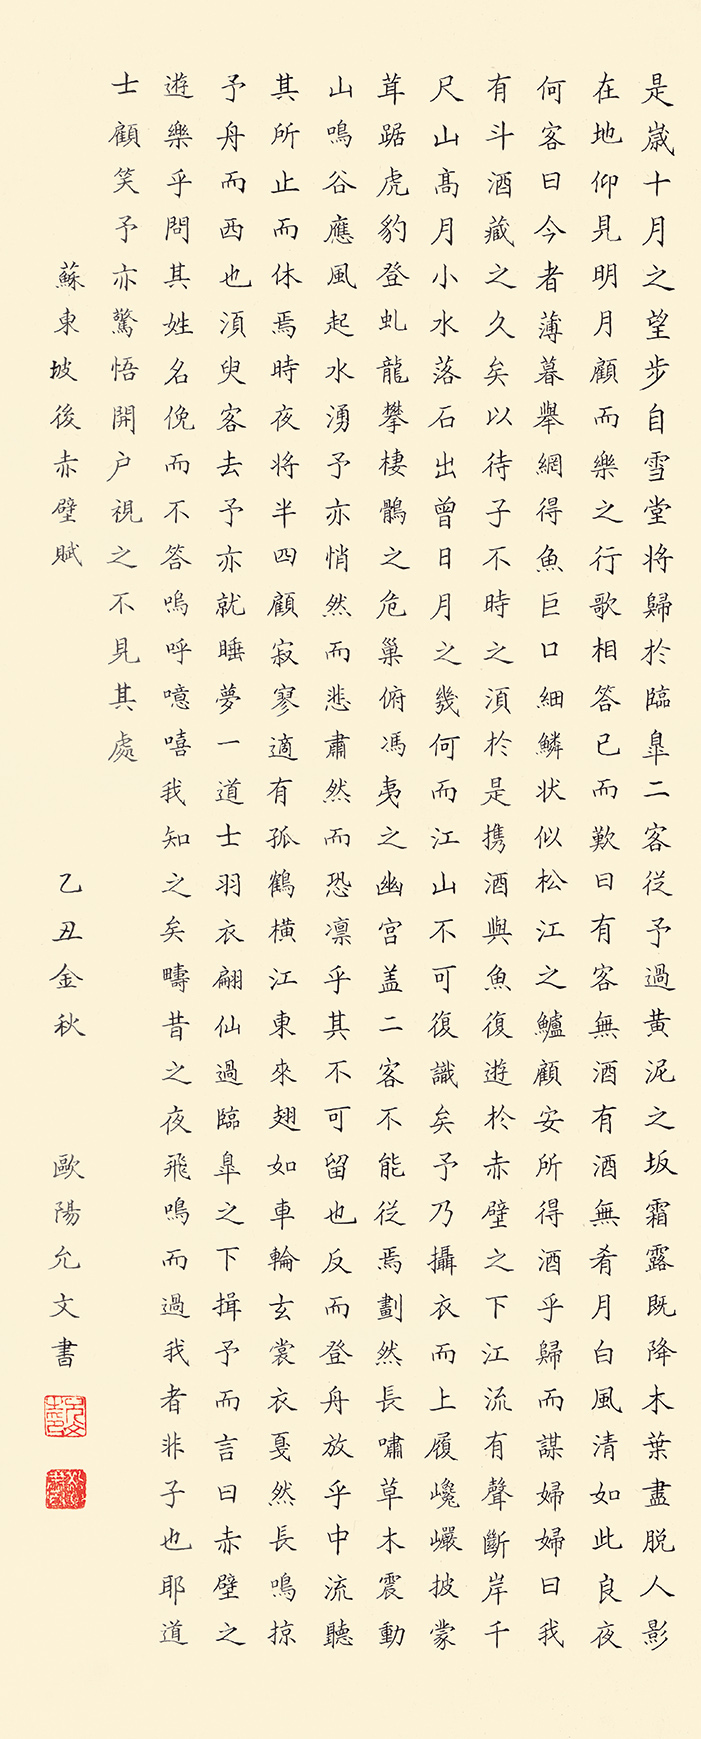 是歲十月之望步自雪堂将歸於臨皐二客従予過黄泥之坂霜露既降木葉盡脱人影
在地仰見明月顧而樂之行歌相答已而歎曰有客無酒有酒無肴月白風清如此良夜
何客曰今者薄暮舉網得魚巨口細鱗状似松江之鱸顧安所得酒乎歸而謀婦婦曰我
有斗酒藏之久矣以待子不時之湏於是携酒與魚復遊於赤壁之下江流有聲斷岸千
尺山高月小水落石出曾日月之幾何而江山不可復識矣予乃攝衣而上履巉巖披蒙
茸踞虎豹登虬龍攀棲鶻之危巢俯馮夷之幽宮盖二客不能従焉劃然長嘯草木震動
山鳴谷應風起水湧予亦悄然而悲肅然而恐凛乎其不可留也反而登舟放乎中流聽
其所止而休焉時夜将半四顧寂寥適有孤鶴横江東來翅如車輪玄裳衣戛然長鳴掠
予舟而西也湏臾客去予亦就睡夢一道士羽衣翩仙過臨皐之下揖予而言曰赤壁之
遊樂乎問其姓名俛而不答嗚呼噫嘻我知之矣疇昔之夜飛鳴而過我者非子也耶道
士顧笑予亦驚悟開户視之不見其處
蘇東坡後赤壁賦 乙丑金秋 歐陽允文書